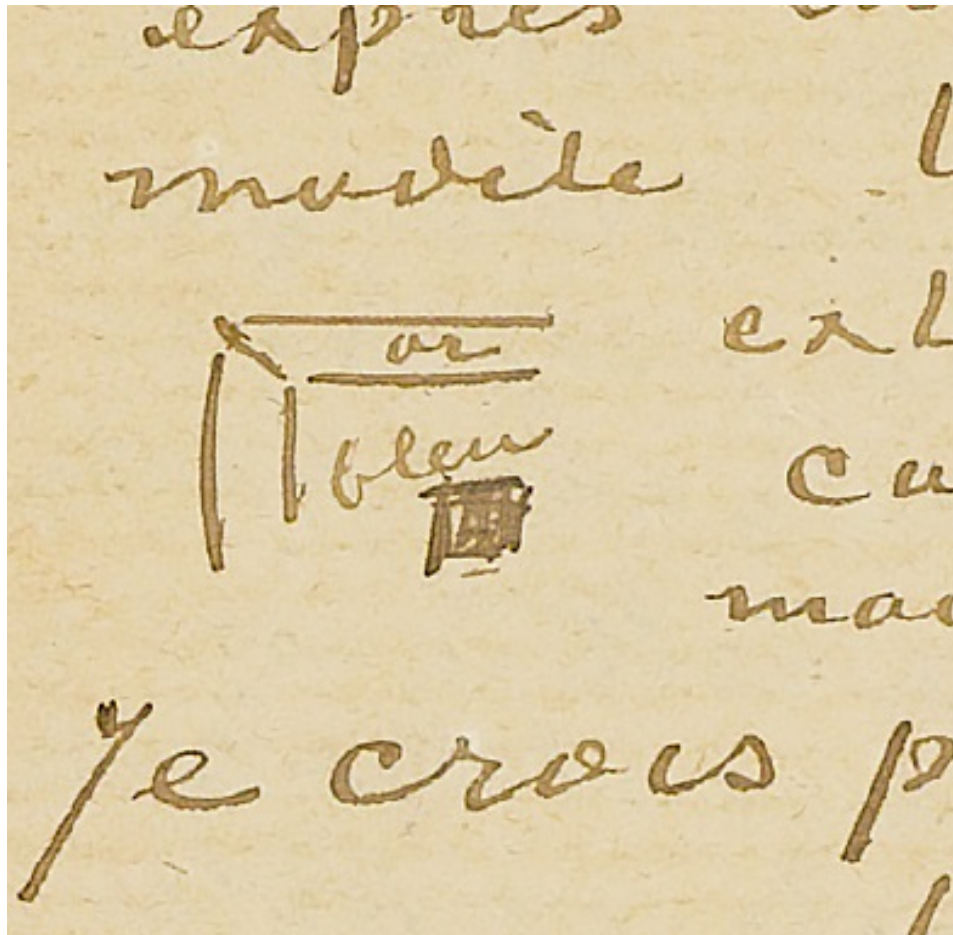 exprès
modèle
or
ext
bleu
cu
mac
Je crois p